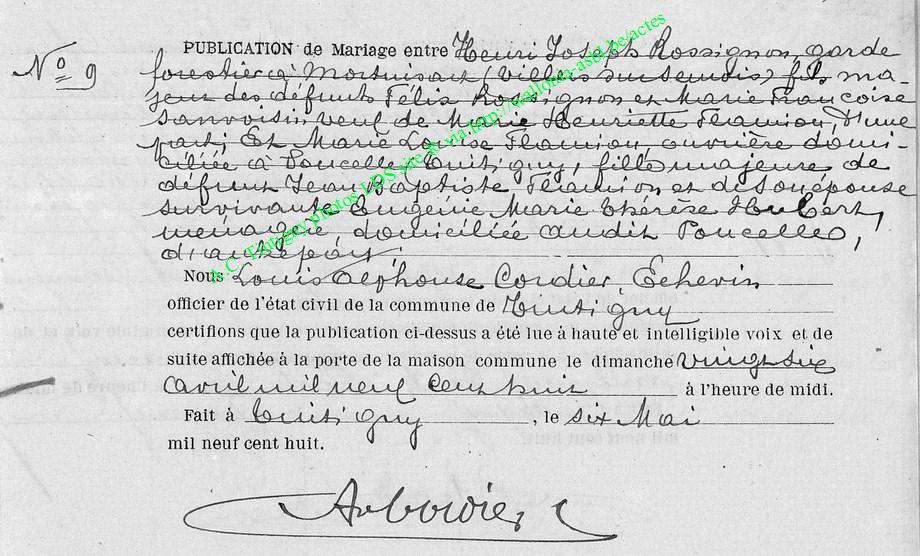 N° 9
PUBLICATION de Mariage entre Henri Joseph Rossignon, garde
forestier à Mortinsart (Villers sur Semois) fils ma-
jeur des défunts Félix Rossignon et Marie Françoise
Sanvoisin, veuf de Marie Henriette Flamion, d'une
part; Et Marie Louise Flamion, ouvrière domi-
ciliée à Poncelle, Tintigny, fille majeure de
défunt Jean Baptiste Flamion et de son épouse
survivante Eugénie Marie Thérèse Hubert,
ménagère domiciliée audit Poncelle,
d'autre part.
Nous Louis Alphonse Cordier, Echevin
officier de l'état civil de la commune de Tintigny
certifions que la publication ci-dessus a été lue à haute et intelligible voix et de
suite affichée à la porte de la maison commune le dimanche vingt six
avril mil neuf cent huit à l'heure de midi.
Fait à Tintigny, le six Mai
mil neuf cent huit.